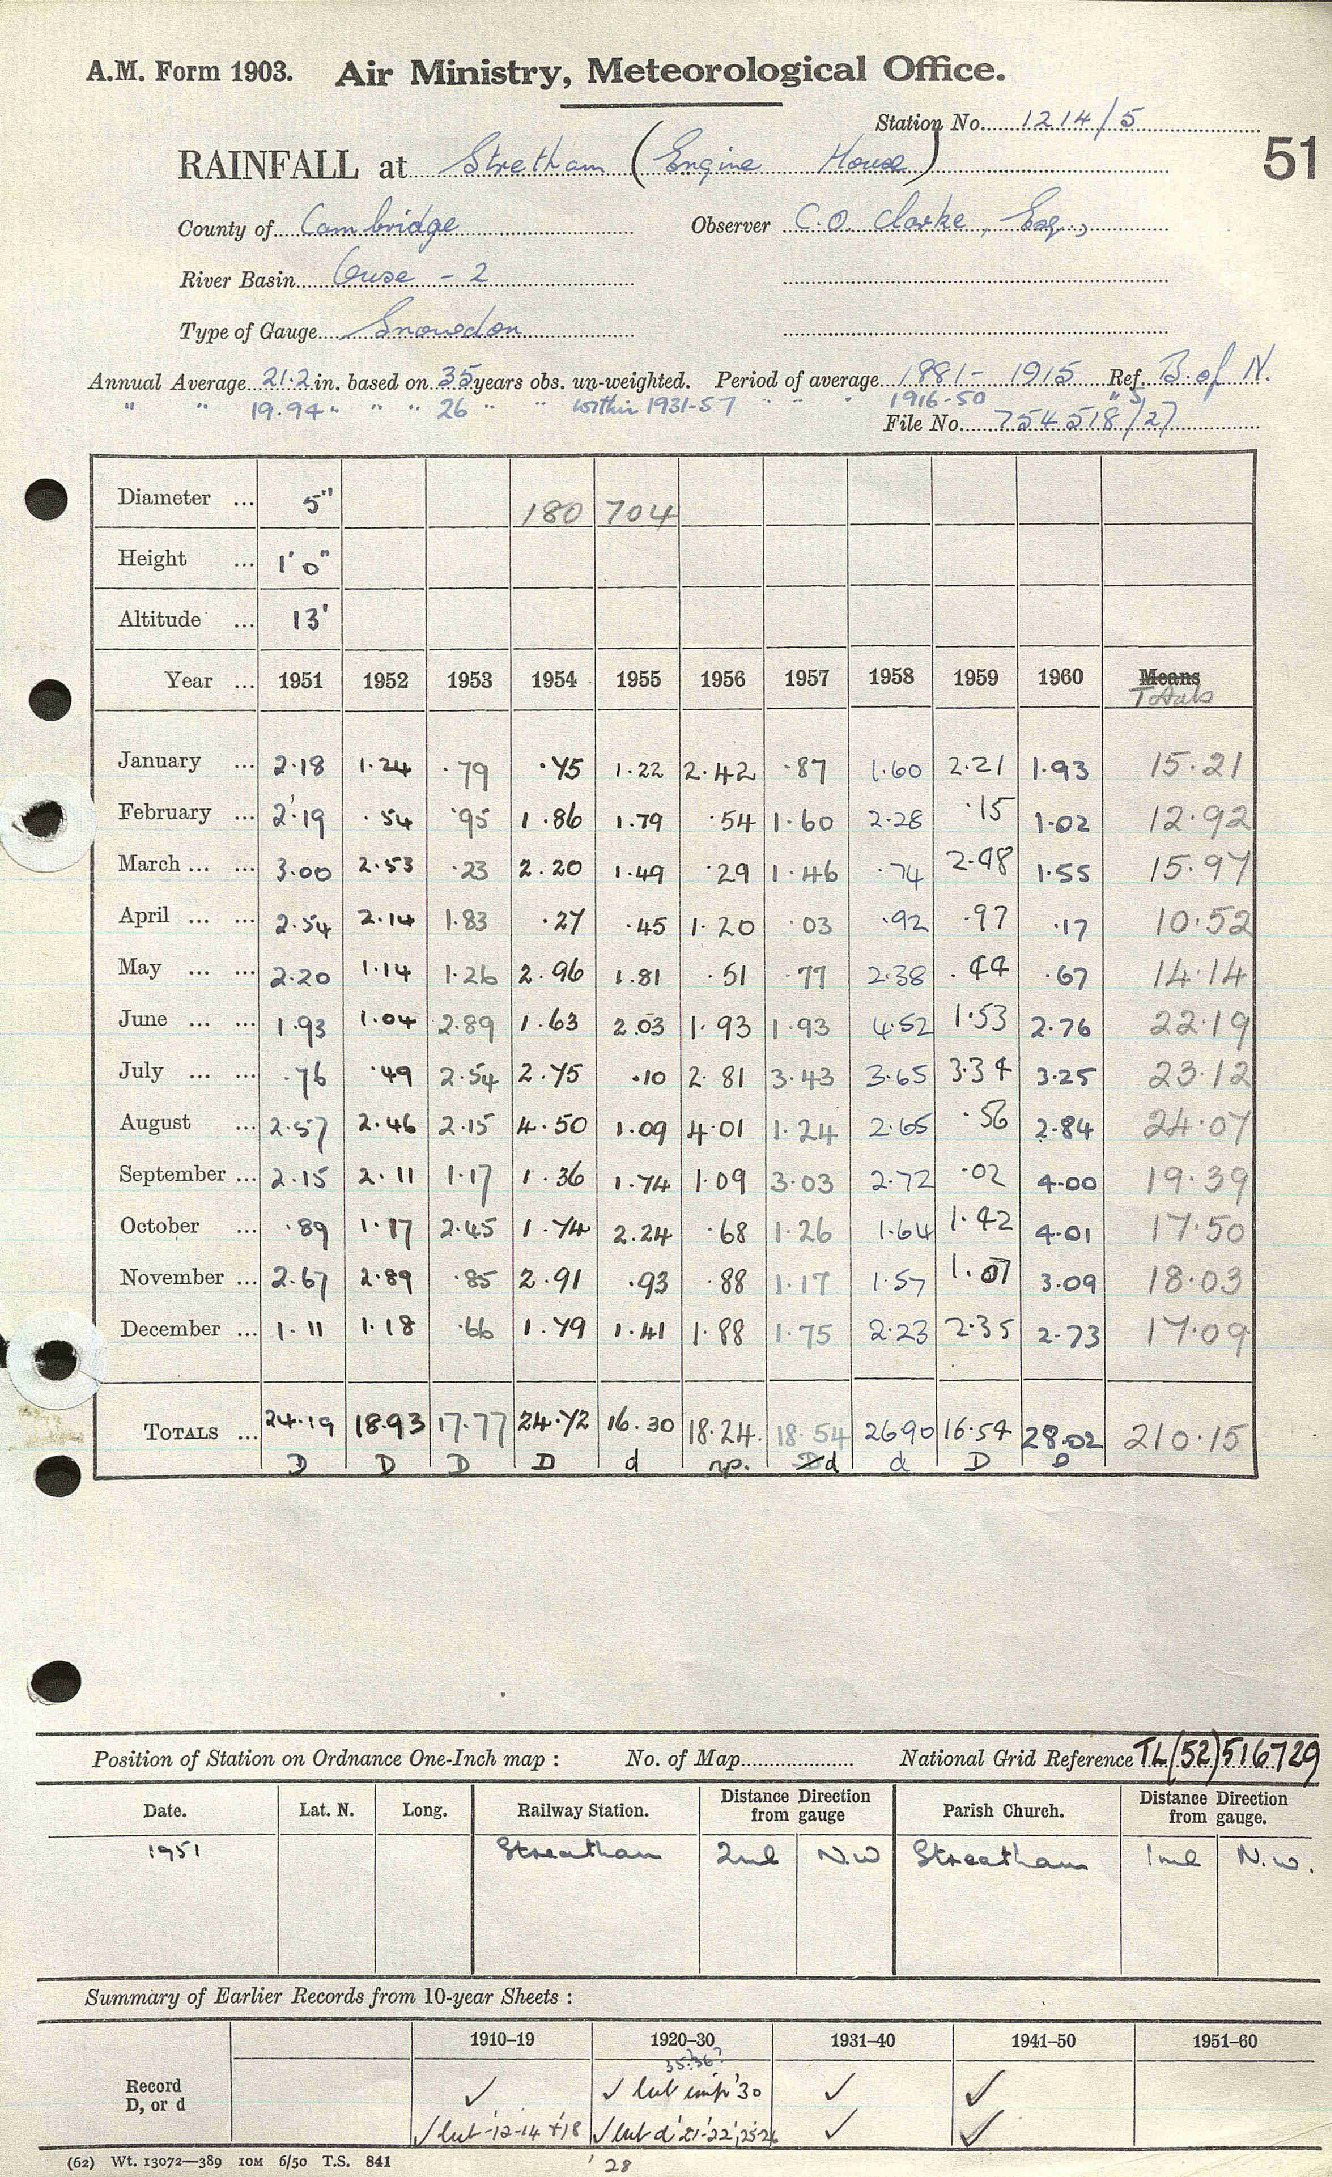 A.M. Form 1903. Air Ministry, Meteorological Office.
Station No. 1214/5
RAINFALL at Stretham (Engine House)
51
County of Cambridge Observer C.O. Clarke, Esq.,
River Basin Ouse - 2
Type of Gauge Snowdon
Annual Average 21.2 in. based on 35 years obs. un-weighted. Period of average 1881 - 1915 Ref. B. of N.
" " 19.94 " " " 26 " " within 1931-57 " " " 1916-50 "
File No. 754518/27
Diameter ... 5" 180 704
Height ... 1' 0"
Altitude ... 13'
Year ... 1951 1952 1953 1954 1955 1956 1957 1958 1959 1960 Means Totals
January ... 2.18 1.24 .79 .75 1.22 2.42 .87 1.60 2.21 1.93 15.21
February ... 2.19 .54 .95 1.86 1.79 .54 1.60 2.28 .15 1.02 12.92
March ... ... 3.00 2.53 .23 2.20 1.49 .29 1.46 .74 2.48 1.55 15.97
April ... ... 2.54 2.14 1.83 .27 .45 1.20 .03 .92 .97 .17 10.52
May ... ... 2.20 1.14 1.26 2.96 1.81 .51 .77 2.38 .44 .67 14.14
June ... ... 1.93 1.04 2.89 1.63 2.03 1.93 1.93 4.52 1.53 2.76 22.19
July ... ... .76 .49 2.54 2.75 .10 2.81 3.43 3.65 3.34 3.25 23.12
August ... 2.57 2.46 2.15 4.50 1.09 4.01 1.24 2.65 .56 2.84 24.07
September ... 2.15 2.11 1.17 1.36 1.74 1.09 3.03 2.72 .02 4.00 19.39
October ... .89 1.17 2.45 1.74 2.24 .68 1.26 1.64 1.42 4.01 17.50
November ... 2.67 2.89 .85 2.91 .93 .88 1.17 1.57 1.07 3.09 18.03
December ... 1.11 1.18 .66 1.79 1.41 1.88 1.75 2.23 2.35 2.73 17.09
TOTALS ... 24.19 18.93 17.77 24.72 16.30 18.24 18.54 26.90 16.54 28.02 210.15
D D D D d np. D d d D D
Position of Station on Ordnance One-Inch map : No. of Map National Grid Reference TL(52)516729
Date. Lat. N. Long. Railway Station. Distance Direction from gauge Parish Church. Distance Direction from gauge.
1951 Streatham 2ml N.W Streatham 1ml N.W.
Summary of Earlier Records from 10-year Sheets :
1910–19 1920–30 1931–40 1941–50 1951–60
35.36?
Record ✓ ✓ but imp '30 ✓ ✓
D, or d ✓ but '12-14 + 18 ✓ but d '21-'22, '25-26 ✓ ✓
'28
(62) Wt. 13072—389 10M 6/50 T.S. 841